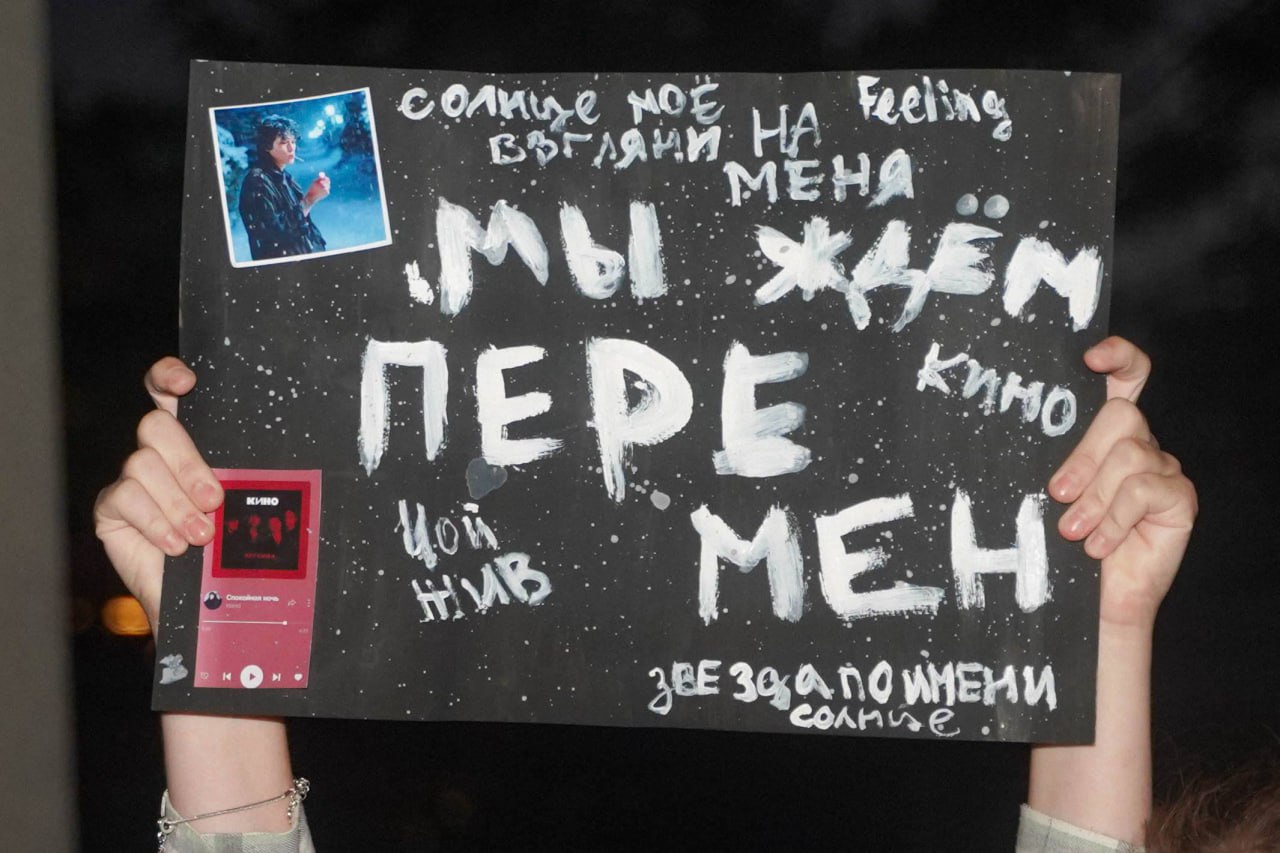 солнце моё
взгляни НА
МЕНЯ
Feeling
„МЫ ЖДЁМ
ПЕРЕ
МЕН
КИНО
Цой
ЖИВ
КИНО
Спокойная ночь
звезда по имени
солнце.